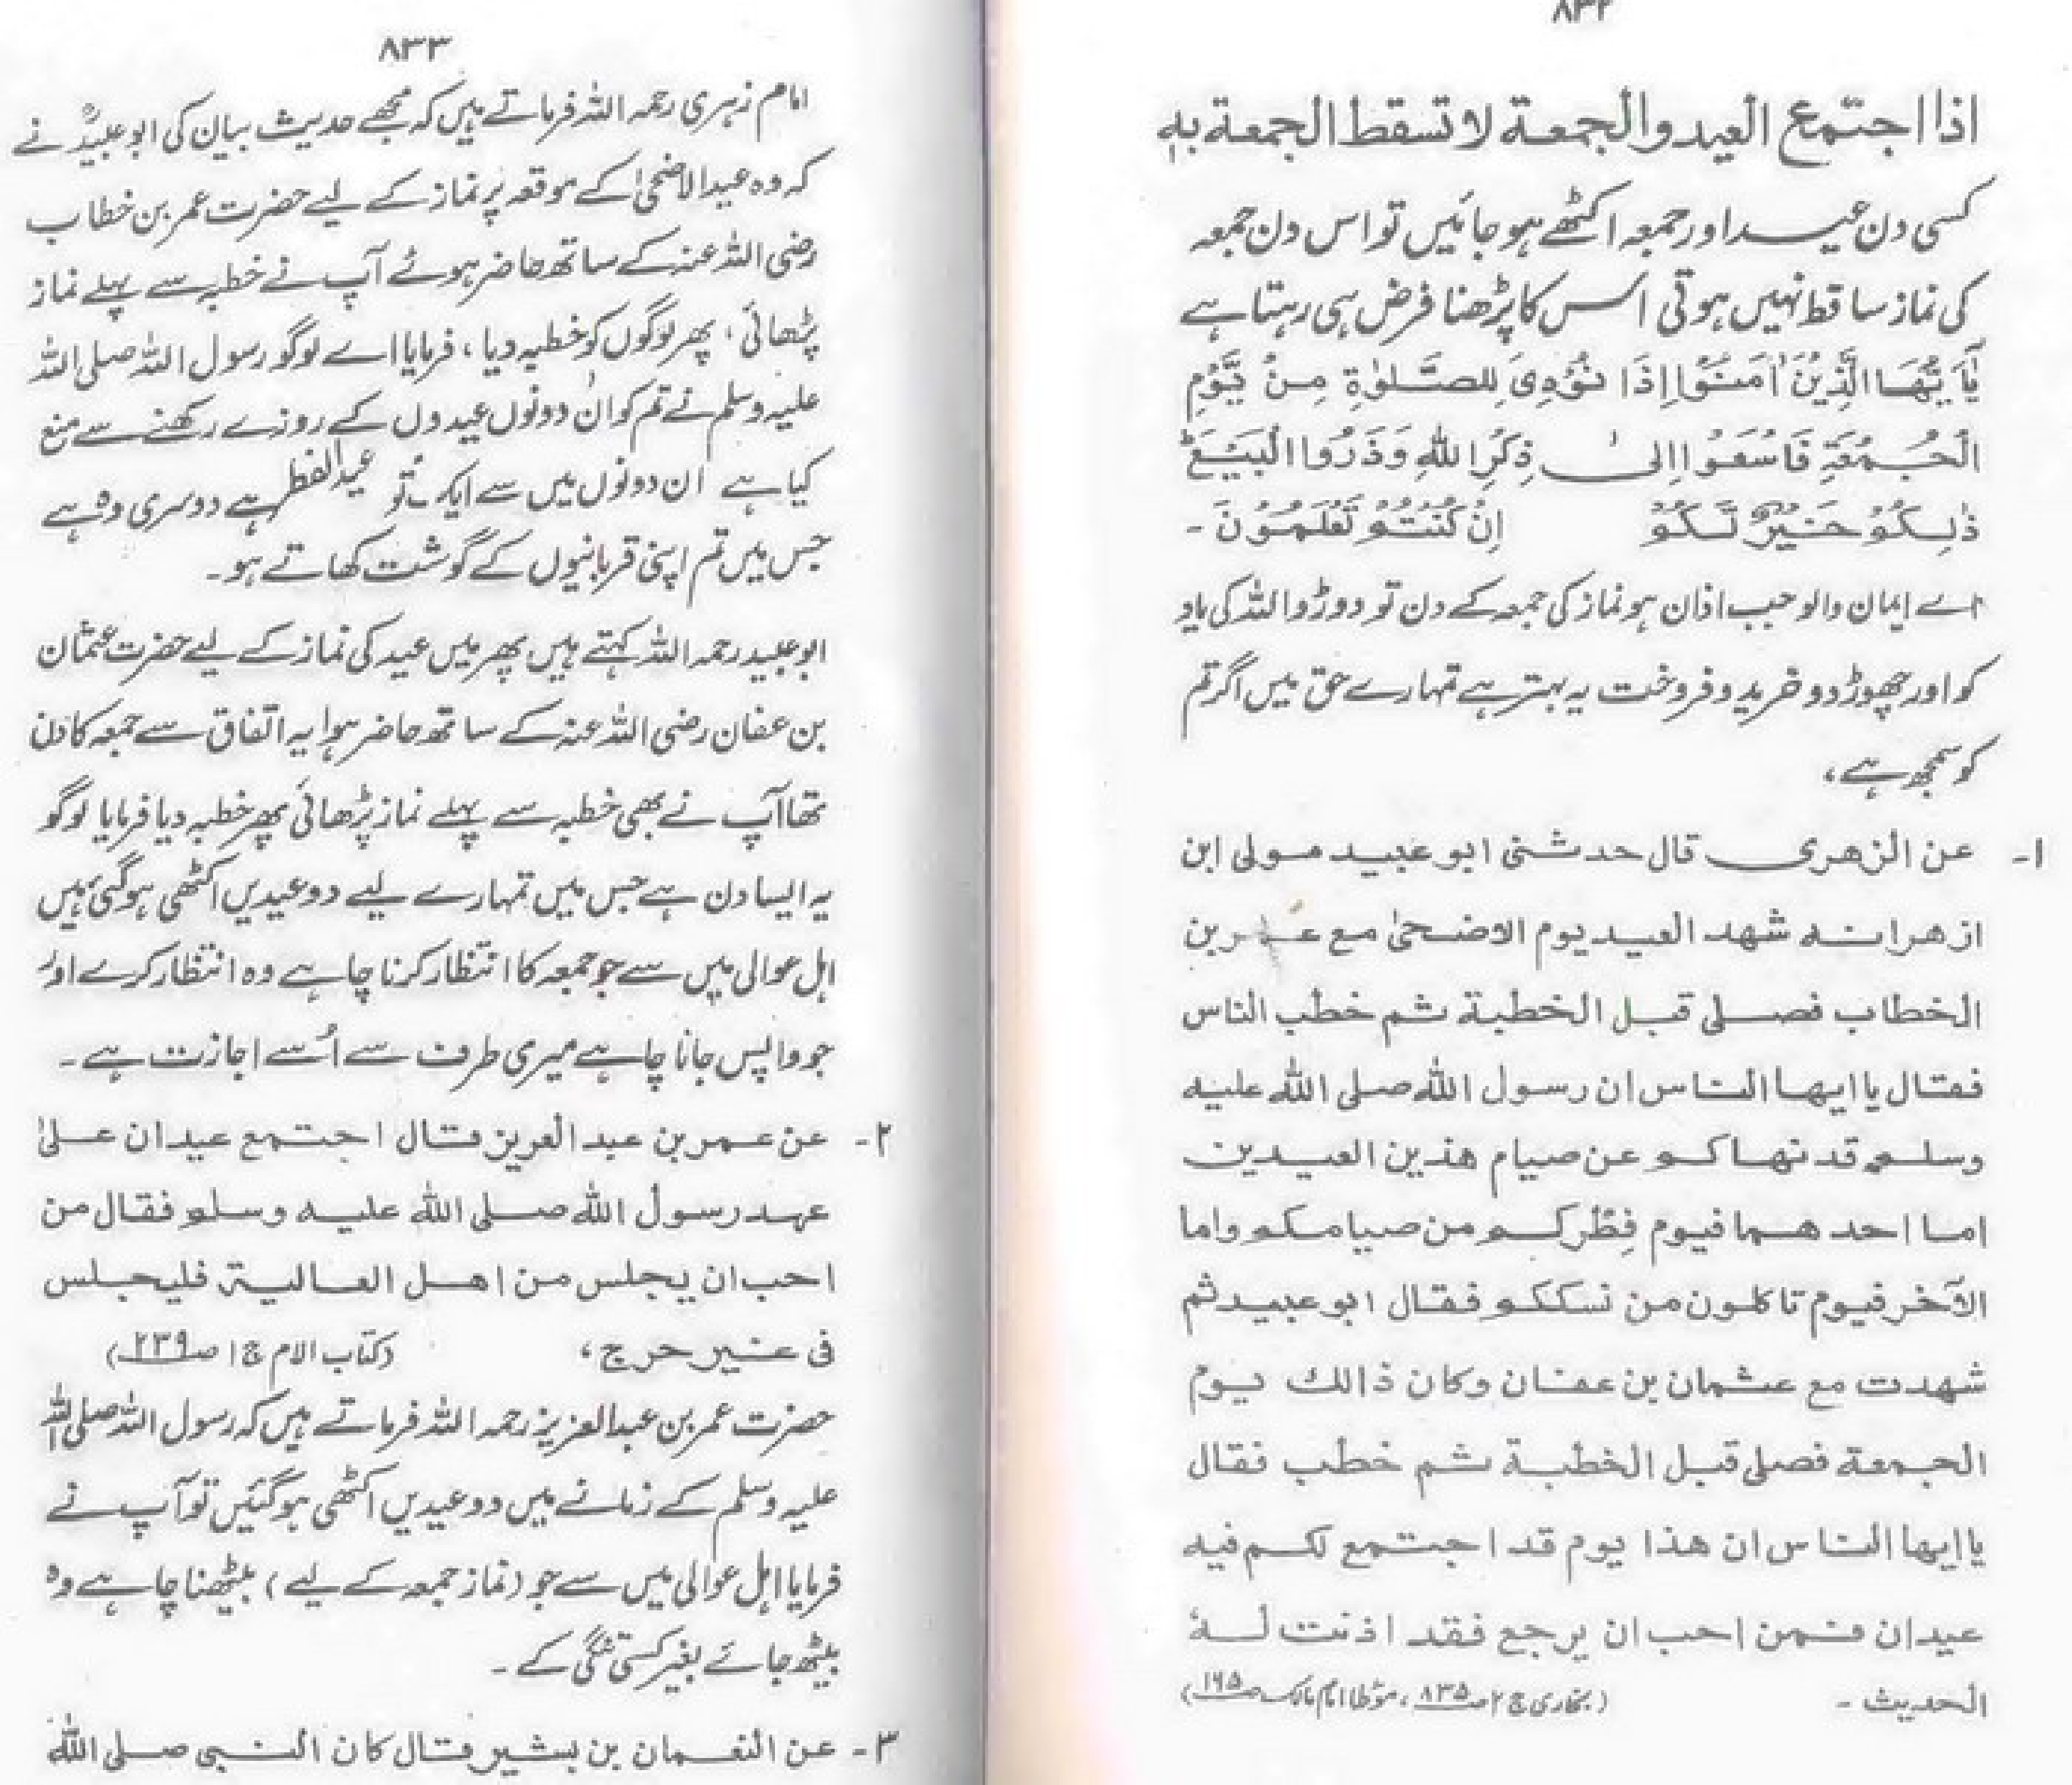 ۸۳۲
اذا اجتمع العيد والجمعة لا تسقط الجمعة به
کسی دن عید اور جمعہ اکٹھے ہو جائیں تو اس دن جمعہ
کی نماز ساقط نہیں ہوتی اس کا پڑھنا فرض ہی رہتا ہے
يٰاَيُّهَا الَّذِيْنَ اٰمَنُوْا اِذَا نُوْدِىَ لِلصَّلٰوةِ مِنْ يَّوْمِ
الْجُمُعَةِ فَاسْعَوْا اِلىٰ ذِكْرِ اللهِ وَذَرُوا الْبَيْعَ ط
ذٰلِكُمْ خَيْرٌ لَّكُمْ اِنْ كُنْتُمْ تَعْلَمُوْنَ -
اے ایمان والو جب اذان ہو نماز کی جمعہ کے دن تو دوڑو اللہ کی یاد
کو اور چھوڑ دو خرید و فروخت یہ بہتر ہے تمہارے حق میں اگر تم
کو سمجھ ہے،
۱- عن الزهرى قال حدثنى ابو عبيد مولى ابن
ازهر انه شهد العيد يوم الاضحىٰ مع عمر بن
الخطاب فصلى قبل الخطبة ثم خطب الناس
فقال يا ايها الناس ان رسول الله صلى الله عليه
وسلم قد نهاكم عن صيام هذين العيدين
اما احدهما فيوم فِطركم من صيامكم واما
الآخر فيوم تاكلون من نسككم فقال ابو عبيد ثم
شهدت مع عثمان بن عفان وكان ذالك يوم
الجمعة فصلى قبل الخطبة ثم خطب فقال
يا ايها الناس ان هذا يوم قد اجتمع لكم فيه
عيدان فمن احب ان يرجع فقد اذنت لهٗ
الحديث - (بخاری ج ۲ ص ۸۳۵، موطا امام مالک ص ۱۶۵)
۸۳۳
امام زہری رحمہ اللہ فرماتے ہیں کہ مجھے حدیث بیان کی ابو عبیدؒ نے
کہ وہ عید الاضحیٰ کے موقعہ پر نماز کے لیے حضرت عمر بن خطاب
رضی اللہ عنہ کے ساتھ حاضر ہوئے آپ نے خطبہ سے پہلے نماز
پڑھائی، پھر لوگوں کو خطبہ دیا، فرمایا اے لوگو رسول اللہ صلی اللہ
علیہ وسلم نے تم کو ان دونوں عیدوں کے روزے رکھنے سے منع
کیا ہے ان دونوں میں سے ایک تو عید الفطر ہے دوسری وہ ہے
جس میں تم اپنی قربانیوں کے گوشت کھاتے ہو۔
ابو عبید رحمہ اللہ کہتے ہیں پھر میں عید کی نماز کے لیے حضرت عثمان
بن عفان رضی اللہ عنہ کے ساتھ حاضر ہوا یہ اتفاق سے جمعہ کا دن
تھا آپ نے بھی خطبہ سے پہلے نماز پڑھائی پھر خطبہ دیا فرمایا لوگو
یہ ایسا دن ہے جس میں تمہارے لیے دو عیدیں اکٹھی ہو گئی ہیں
اہل عوالی میں سے جو جمعہ کا انتظار کرنا چاہے وہ انتظار کرے اور
جو واپس جانا چاہے میری طرف سے اُسے اجازت ہے۔
۲- عن عمر بن عبد العزيز قال اجتمع عيدان علىٰ
عهد رسول الله صلى الله عليه وسلم فقال من
احب ان يجلس من اهل العالية فليجلس
فى غير حرج، (کتاب الام ج ۱ ص ۲۳۹)
حضرت عمر بن عبد العزیز رحمہ اللہ فرماتے ہیں کہ رسول اللہ صلی اللہ
علیہ وسلم کے زمانے میں دو عیدیں اکٹھی ہو گئیں تو آپ نے
فرمایا اہل عوالی میں سے جو (نماز جمعہ کے لیے) بیٹھنا چاہے وہ
بیٹھ جائے بغیر کسی تنگی کے۔
۳- عن النعمان بن بشير قال كان النبى صلى الله